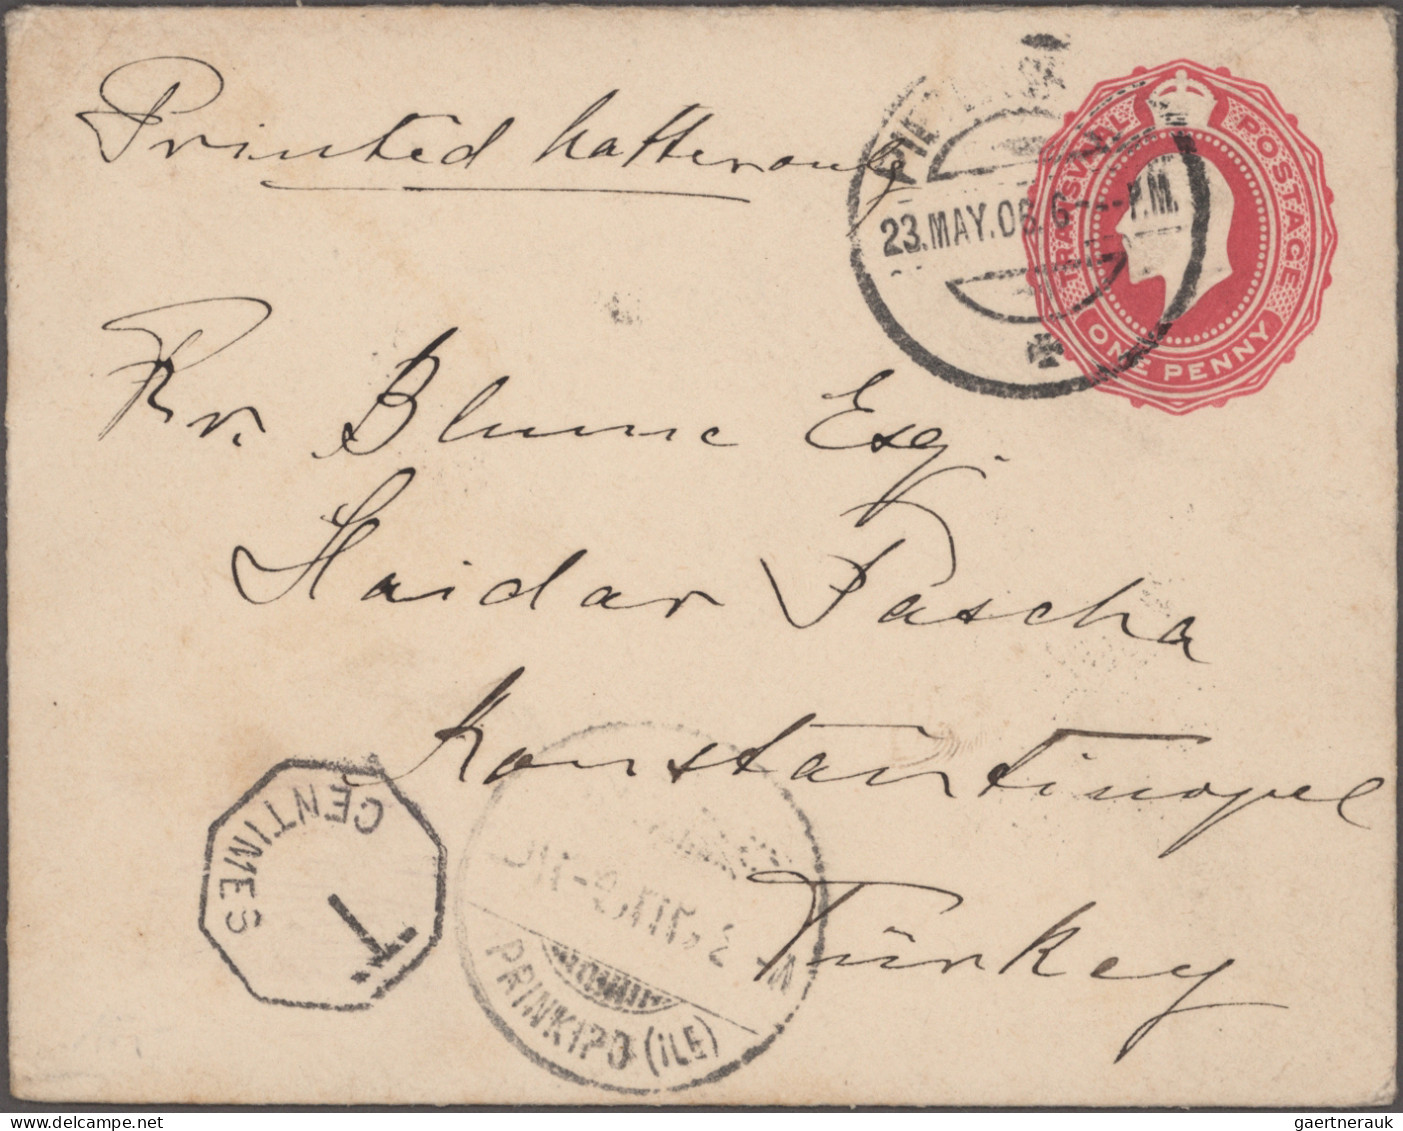 Printed Matter only
TRANSVAAL POSTAGE
ONE PENNY
23.MAY.06. 6---P.M.
Hr. Blume Esq.
Haidar Pascha
Konstantinopel
Türkey
CENTIMES
T.
PRINKIPO (ILE)
gaertnerauk